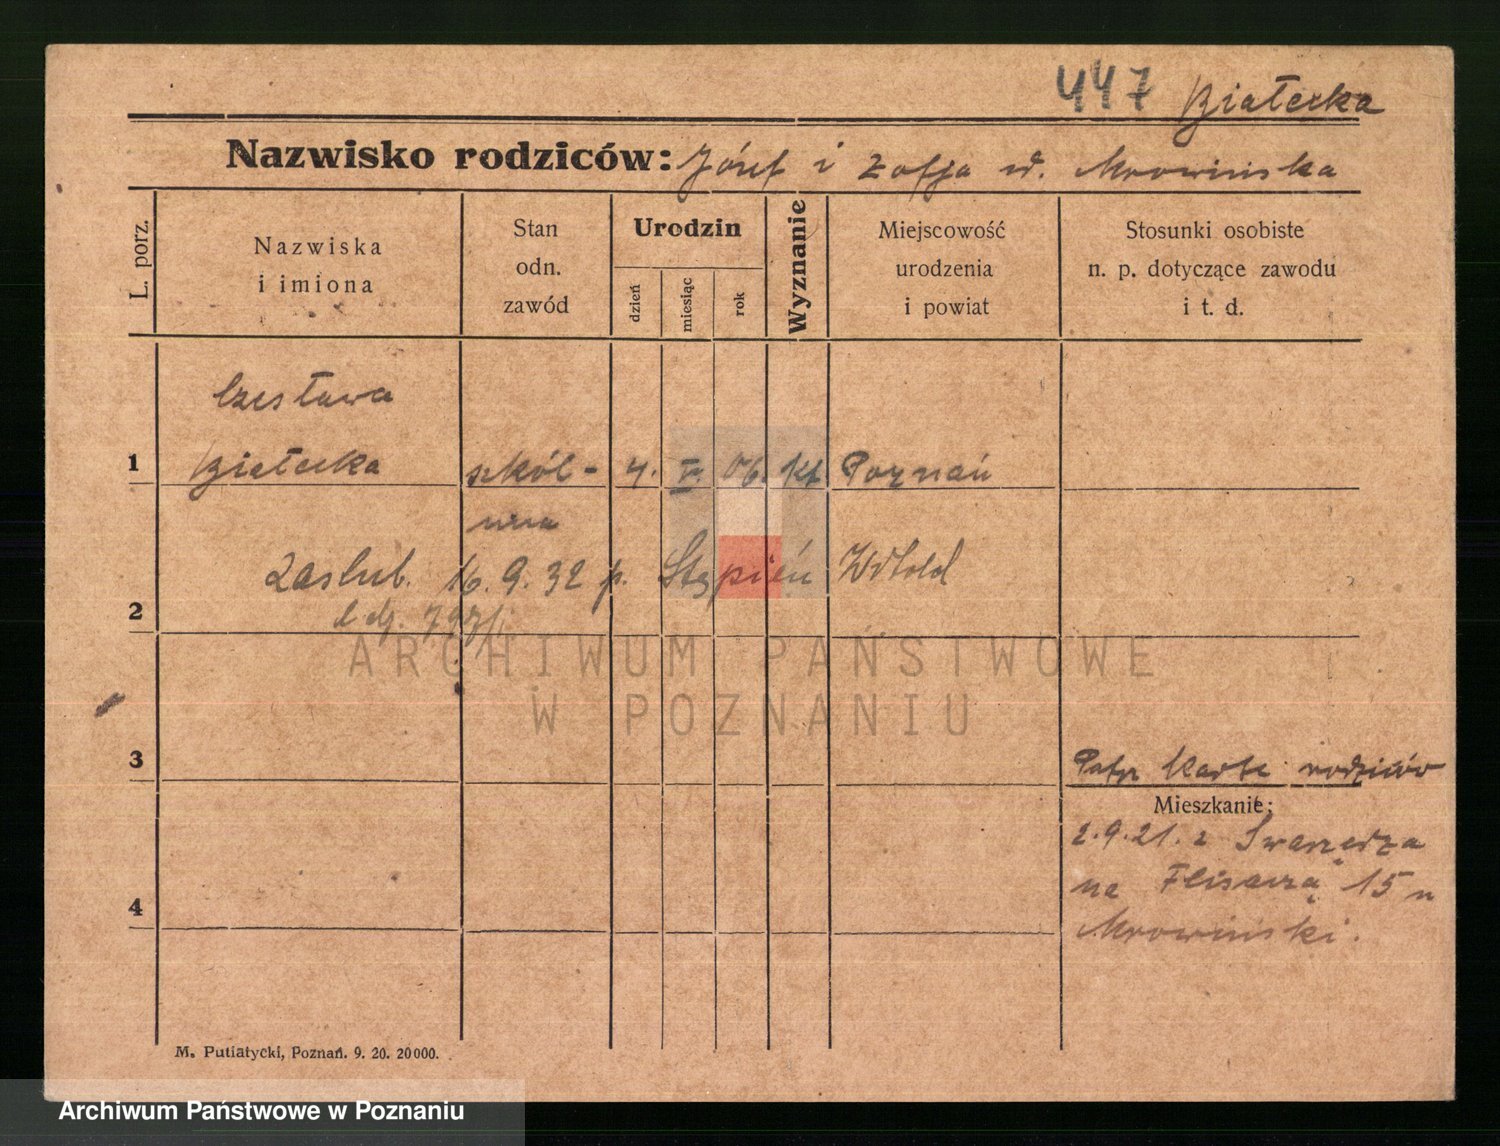 447 Białecka
Nazwisko rodziców: Józef i Zofja d. Mrowińska
L. porz.
Nazwiska
i imiona
Stan
odn.
zawód
Urodzin
dzień
miesiąc
rok
Wyznanie
Miejscowość
urodzenia
i powiat
Stosunki osobiste
n. p. dotyczące zawodu
i t. d.
Czesława
1 Białecka szkól- 4. 06. kt Poznań
nna
zaslub. 16. 9. 32 p. Stępień Witold
2
ARCHIWUM PAŃSTWOWE
W POZNANIU
3
Patrz Karta rodziców
Mieszkanie:
2.9.21. z Swarzędza
na Flisacza 15 u
4
Mrowiński.
M. Putiatycki, Poznań. 9. 20. 20 000.
Archiwum Państwowe w Poznaniu